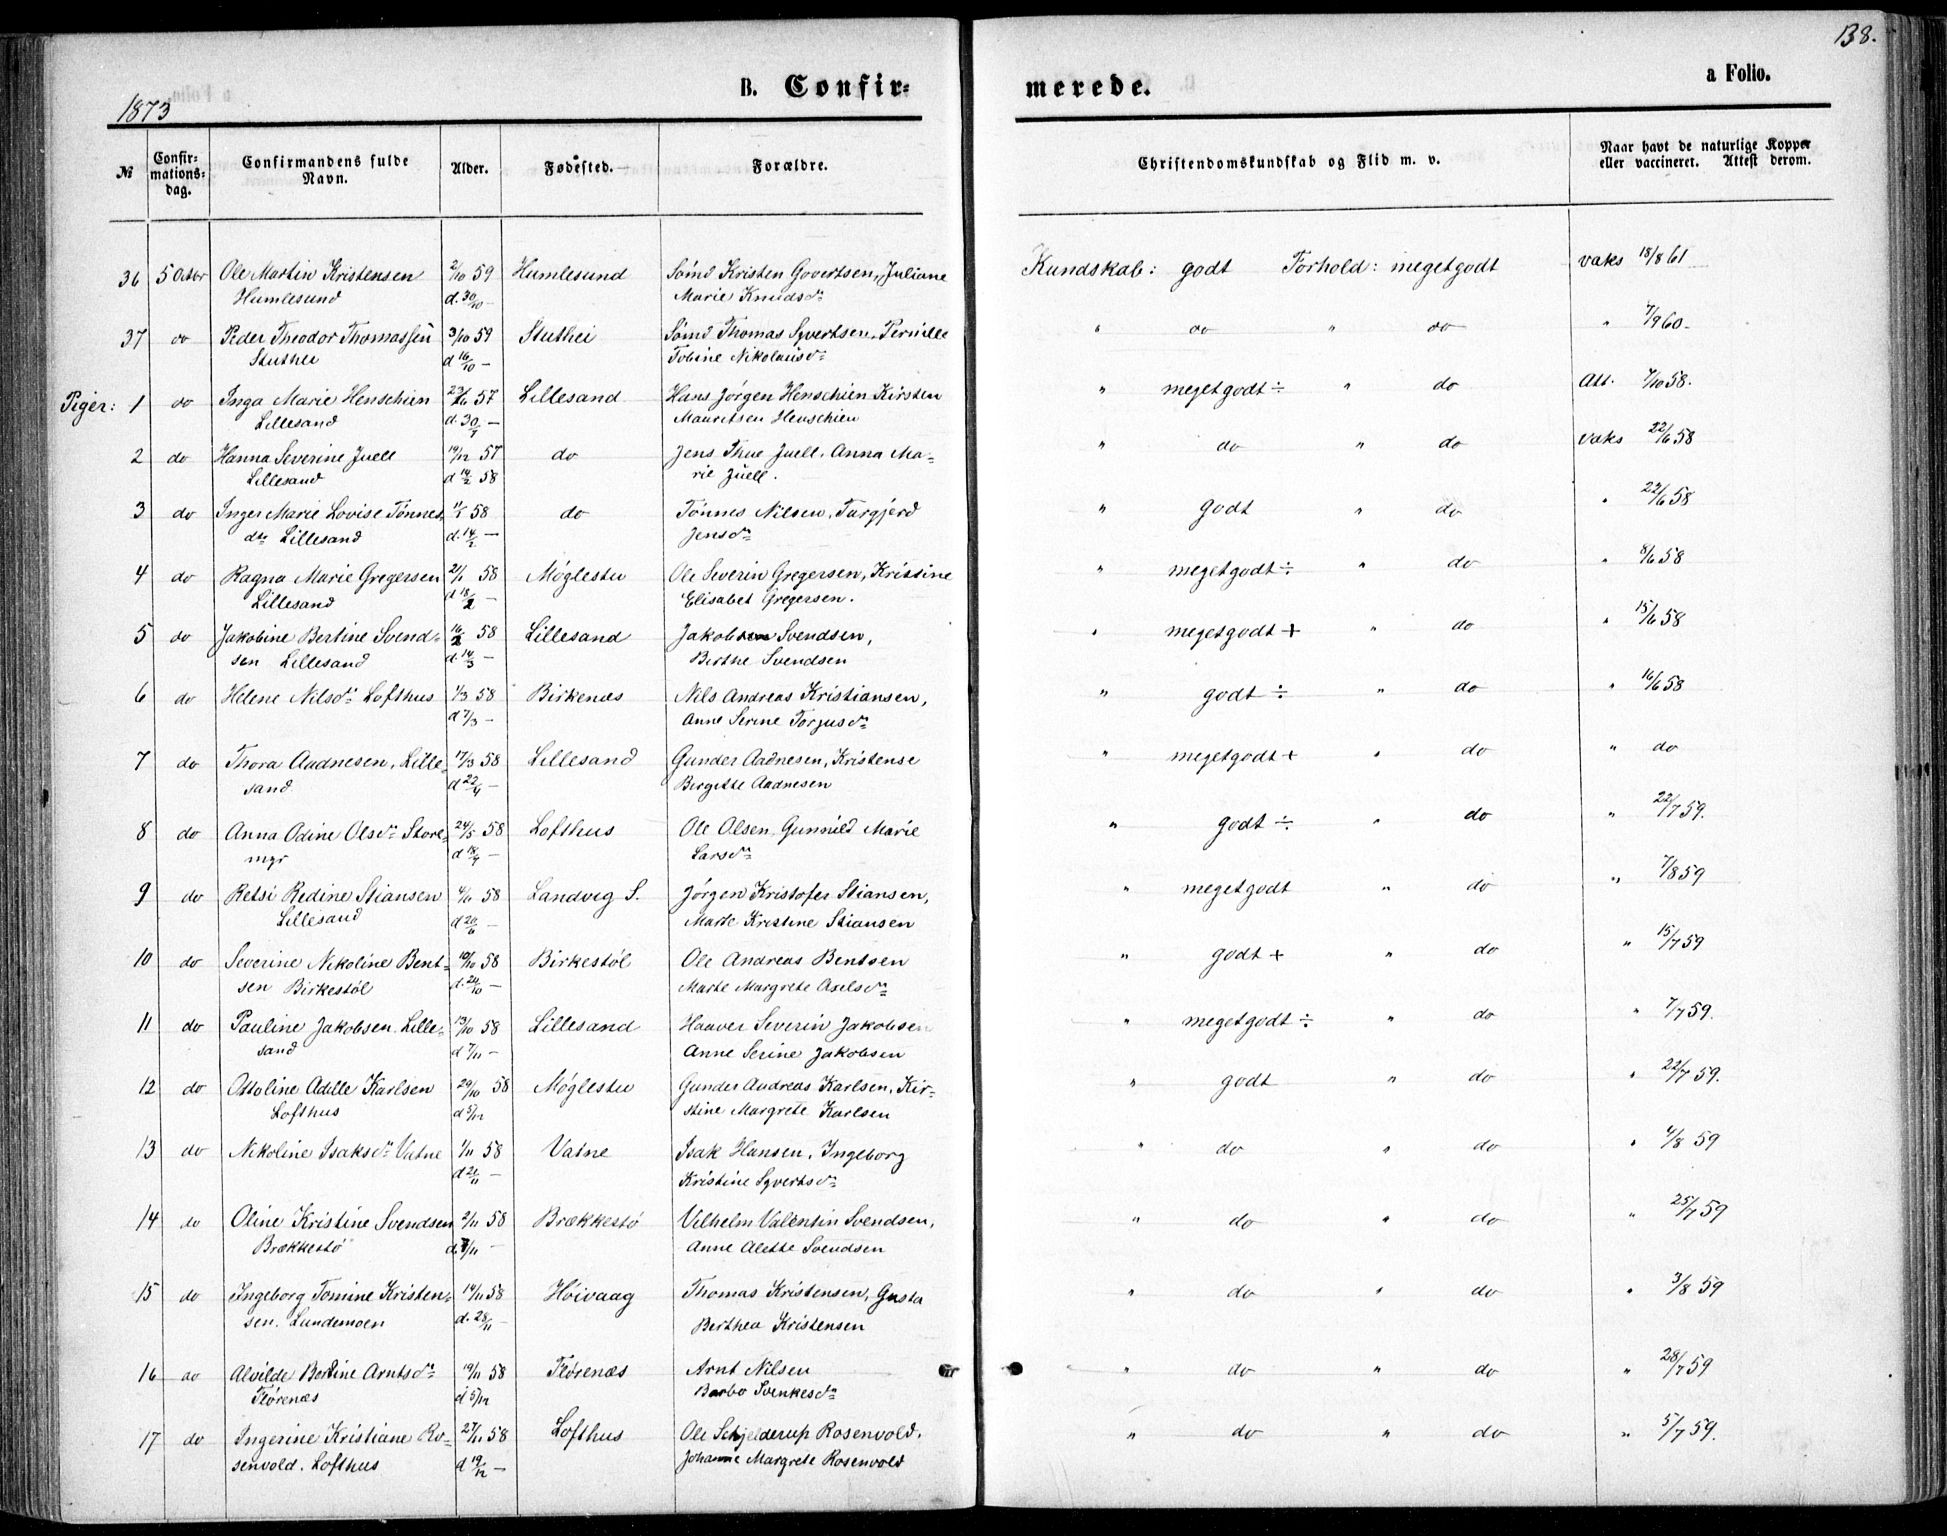 138.
1873
B. Confir-
merede.
a Folio.
№
Confir-
mations-
dag.
Confirmandens fulde
Navn.
Alder.
Fødested.
Forældre.
Christendomskundskab og Flid m. v.
Naar havt de naturlige Kopper
eller vaccineret. Attest derom.
36 5 Octbr Ole Martin Kristensen 2/10 59 Humlesund Sømd Kristen Govertsen, Juliane Kundskab: godt Forhold: megetgodt vaks 18/8 61
Humlesund d. 30/10 — Marie Knudsdr
37 do Peder Theodor Thomassen 3/10 59 Stuthei Sømd Thomas Syvertsen, Pernille " do " do " 7/9 60
Stuthei d 16/10 — Tobine Nikolausdr
Piger: 1 do Inga Marie Henschien 57 Lillesand Hans Jørgen Henschien Kirsten " megetgodt ÷ " do Att. 7/10 58.
Lillesand d. — Mauritsen Henschien
2 do Hanna Severine Juell 19/12 57 do Jens Thue Juell, Anna Ma- " do " do vaks 22/6 58
Lillesand d 14/2 58 rie Juell.
3 do Inger Marie Lovise Tønnes- 58 do Tønnes Nilsen, Targjerd " godt " do " 22/6 58
dtr Lillesand d. 14/2 — Jensdr
4 do Ragna Marie Gregersen 2/1 58 Møglestu Ole Severin Gregersen, Kristine " megetgodt ÷ " do " 8/6 58
Lillesand d 18/2 — Elisabet Gregersen.
5 do Jakobine Bertine Svend- 16/2 58 Lillesand Jakob Svendsen, " megetgodt + " do " 15/6 58
sen Lillesand d. 14/3 — Birthe Svendsen
6 do Helene Nilsdr Lofthus 1/3 58 Birkenæs Nils Andreas Kristiansen, " godt ÷ " do " 16/6 58
d 7/3 — Anne Serine Torjusdr
7 do Thora Aadnesen, Lille- 17/3 58 Lillesand Gunder Aadnesen, Kristense " megetgodt + " do " do
sand d 22/4 — Birgitte Aadnesen
8 do Anna Odine Olsdr Store- 24/5 58 Lofthus Ole Olsen, Gunnild Marie " godt ÷ " do " 22/7 59.
myr d — Larsdr
9 do Retsi Redine Stiansen 58 Landvig S. Jørgen Kristofer Stiansen, " megetgodt " do " 7/8 59
Lillesand d 20/6 — Marte Kristine Stiansen
10 do Severine Nikoline Bent- 10/10 58 Birkestøl Ole Andreas Bentsen " godt + " do " 15/7 59
sen Birkestøl d. 24/10 — Marte Margrete Axelsdr
11 do Pauline Jakobsen. Lille- 13/10 58 Lillesand Haaver Severin Jakobsen " megetgodt ÷ " do " 7/7 59.
sand d 7/11 — Anne Serine Jakobsen
12 do Ottoline Adille Karlsen 29/10 58 Møglestu Gunder Andreas Karlsen, Kir- " godt " do " 22/7 59.
Lofthus d 5/12 stine Margrete Karlsen
13 do Nikoline Isaksdr Vatne 1/11 58 Vatne Isak Hansen, Ingeborg " do " do " 4/8 59
d 21/11 — Kristine Syvertsdr
14 do Oline Kristine Svendsen 2/11 58 Brækkestø Vilhelm Valentin Svendsen, " do " do " 25/7 59
Brækkestø d. 7/11 — Anne Alette Svendsen
15 do Ingeborg Tomine Kristen- 14/11 58 Høivaag Thomas Kristensen, Gusta " do " do " 3/8 59
sen. Lundemoen d. 28/11 — Berthea Kristensen
16 do Alvilde Bertine Arntsdr 19/11 58 Flørenæs Arnt Nilsen " do " do " 28/7 59
Flørenæs d 5/12 Barbo Svenkesdr
17 do Ingerine Kristiane Ro- 27/11 58 Lofthus Ole Schjelderup Rosenvold, " do " do " 5/7 59.
senvold. Lofthus d 19/12 — Johanne Margrete Rosenvold